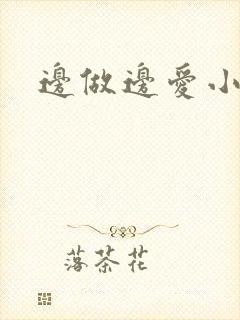 邊做邊愛小
落茶花